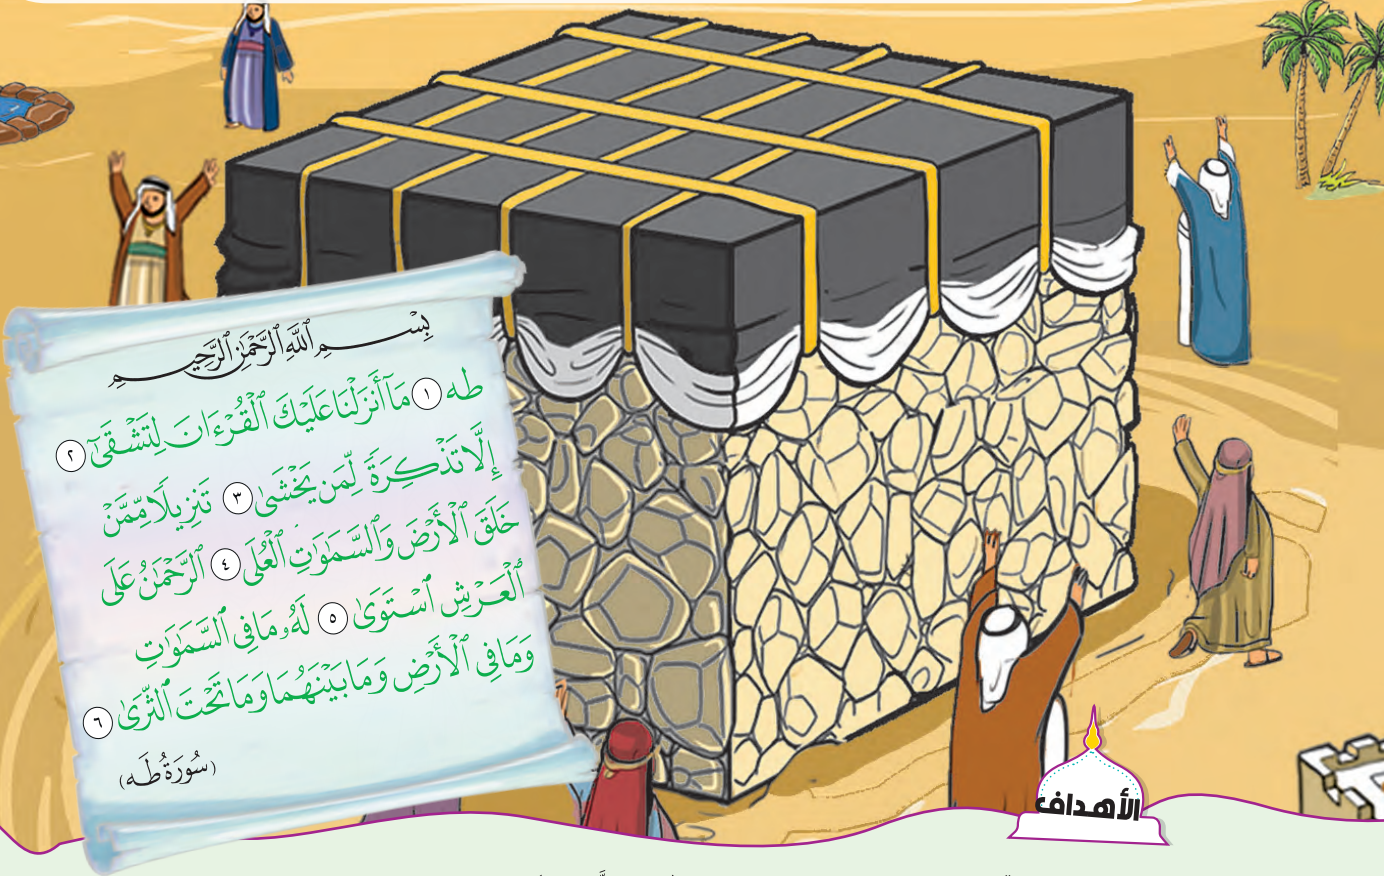 بِسْمِ ٱللَّهِ ٱلرَّحْمَٰنِ ٱلرَّحِيمِ
طه ١ مَآ أَنزَلْنَا عَلَيْكَ ٱلْقُرْءَانَ لِتَشْقَىٰٓ ٢
إِلَّا تَذْكِرَةً لِّمَن يَخْشَىٰ ٣ تَنزِيلًا مِّمَّنْ
خَلَقَ ٱلْأَرْضَ وَٱلسَّمَٰوَٰتِ ٱلْعُلَى ٤ ٱلرَّحْمَٰنُ عَلَى
ٱلْعَرْشِ ٱسْتَوَىٰ ٥ لَهُۥ مَا فِى ٱلسَّمَٰوَٰتِ
وَمَا فِى ٱلْأَرْضِ وَمَا بَيْنَهُمَا وَمَا تَحْتَ ٱلثَّرَىٰ ٦
(سُورَةُ طَه)
الأهداف